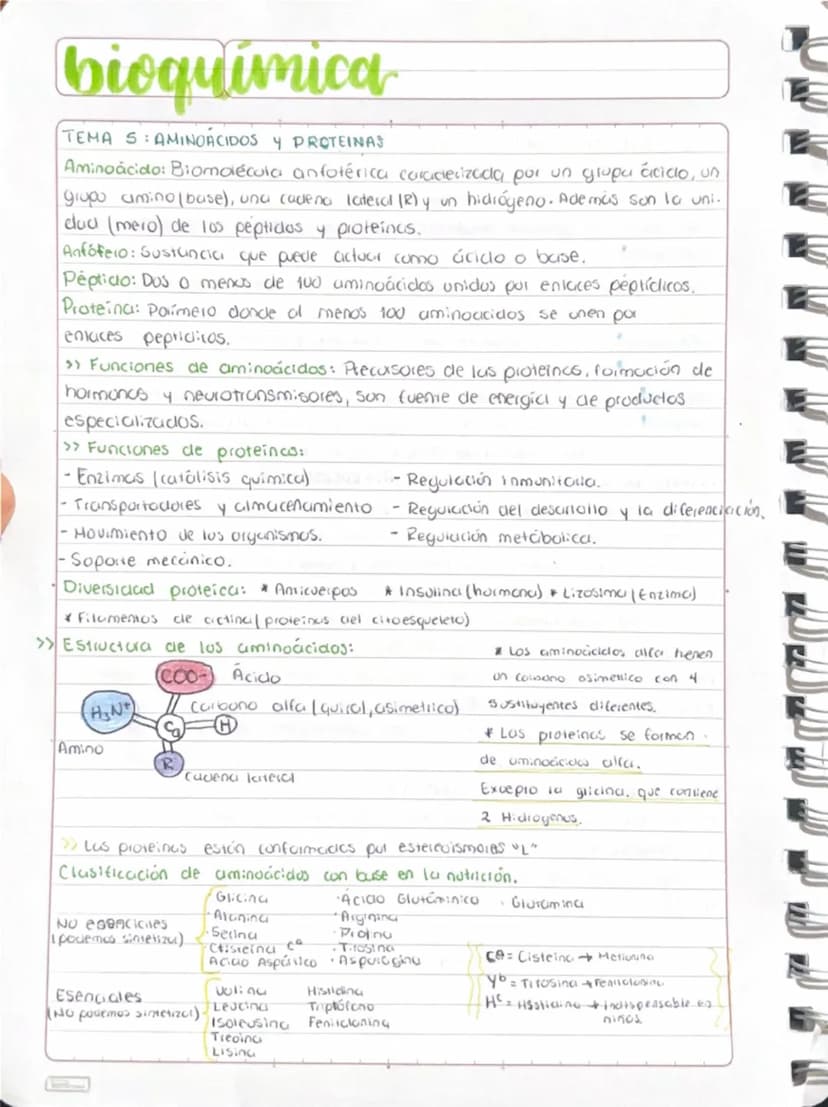 bioquímica
TEMA 5: AMINOÁCIDOS Y PROTEINAS
Aminoácido: Biomolécula anfotérica caracterizada por un grupo ácido, un
grupo amino (base), una cadena lateral (R) y un hidrógeno. Además son la uni-
dad (mero) de los péptidos y proteínas.
Anfófero: Sustancia que puede actuar como ácido o base.
Péptido: Dos o menos de 100 aminoácidos unidos por enlaces peptídicos.
Proteína: Polímero donde al menos 100 aminoacidos se unen por
enlaces peptidicos.
>> Funciones de aminoácidos: Precusores de las proteínas, formación de
hormonas y neurotransmisores, son fuente de energía y de productos
especializados.
>> Funciones de proteínas:
- Enzimas (catálisis química) - Regulación inmunitaria.
- Transportadores y almacenamiento - Regulación del desarrollo y la diferenciación.
- Movimiento de los organismos. - Regulación metábolica.
- Soporte mecánico.
Diversidad proteica: * Anticuerpos * Insulina (hormona) * Lizosima (Enzima)
* Filamentos de actina (proteinas del citoesqueleto)
>> Estructura de los aminoácidos:
* Los aminoácidos alfa tienen
COO- Ácido
un carbono asimetrico con 4
H3N+ Carbono alfa (quiral, asimetrico) sustituyentes diferentes.
Cα H
* Las proteínas se forman
Amino
de aminoácidos alfa.
R
Cadena lateral
Excepto la glicina, que contiene
2 Hidrógenos.
>> Las proteínas están conformadas por estereoisomeros "L"
Clasificación de aminoácidos con base en la nutrición.
No esenciales
(podemos sintetizar)
Glicina · Ácido Glutámínico · Glutamina
· Alanina · Arginina
· Serina · Prolina
· Cisteína Ca · Tirosina
Acido Aspártico · Asparagina
Ca = Cisteína → Metionina
Yb = Tirosina → Fenilalanina
Hc = Histidina → indispensable en
niños
Esenciales
(No podemos sintetizar)
Valina Histidina
Leucina Triptófano
Isoleusina Fenilalanina
Treoina
Lisina